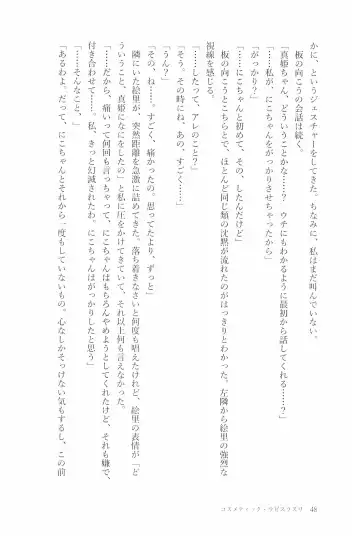 かに、というジェスチャーをしてきた。ちなみに、私はまだ叫んでいない。
板の向こうの会話は続く。
「真姫ちゃん、どういうことかな……？　ウチにもわかるように最初から話してくれる……？」
「……私が、にこちゃんをがっかりさせちゃったから」
「がっかり？」
「……にこちゃんと初めて、その、したんだけど」
板の向こうとこちらとで、ほとんど同じ類の沈黙が流れたのがはっきりとわかった。左隣から絵里の強烈な
視線を感じる。
「……したって、アレのこと？」
「そう。その時にね、あの、すごく……」
「うん？」
「その、ね……。すごく、痛かったの。思ってたより、ずっと」
隣にいた絵里が、突然距離を急激に詰めてきた。落ち着きなさいと何度も唱えたけれど、絵里の表情が「ど
ういうこと、真姫になにをしたの」と私に圧をかけてきていて、それ以上何も言えなかった。
「……だから、痛いって何回も言っちゃって、にこちゃんはもちろんやめようとしてくれたけど、それは嫌で、
付き合わせて……。私、きっと幻滅されたわ。にこちゃんはがっかりしたと思う」
「あるわよ。だって、にこちゃんとそれから一度もしていないもの。心なしかそっけない気もするし、この前
コスメティック・ラピスラズリ　48